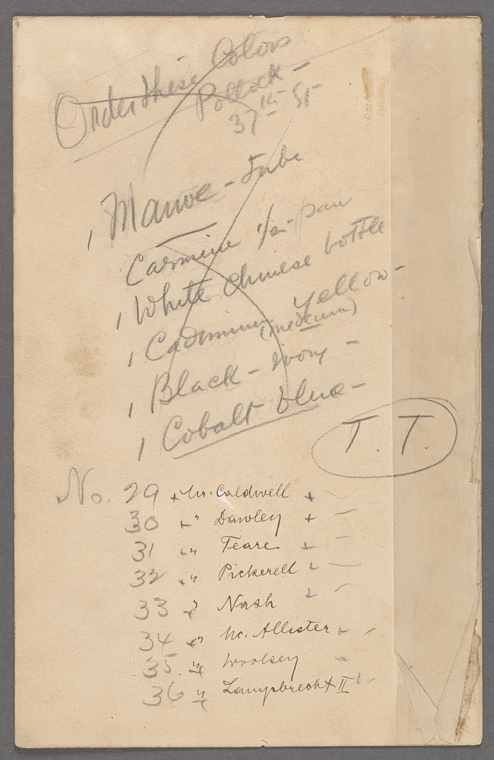 Order these Colors
Pollock —
37th St
1 Mauve - Tube
Carmine 1/2 - pan
1 White Chinese bottle
1 Cadimium Yellow -
(medium)
1 Black - Ivory -
1 Cobalt blue -
T. T.
No. 29 + Mr. Caldwell +
30 + " Dawley +
31 + " Feare +
32 + " Pickerell +
33 + " Nash +
34 + " Mc. Allister +
35 + " Woolsey
36 + " Lampbrecht II